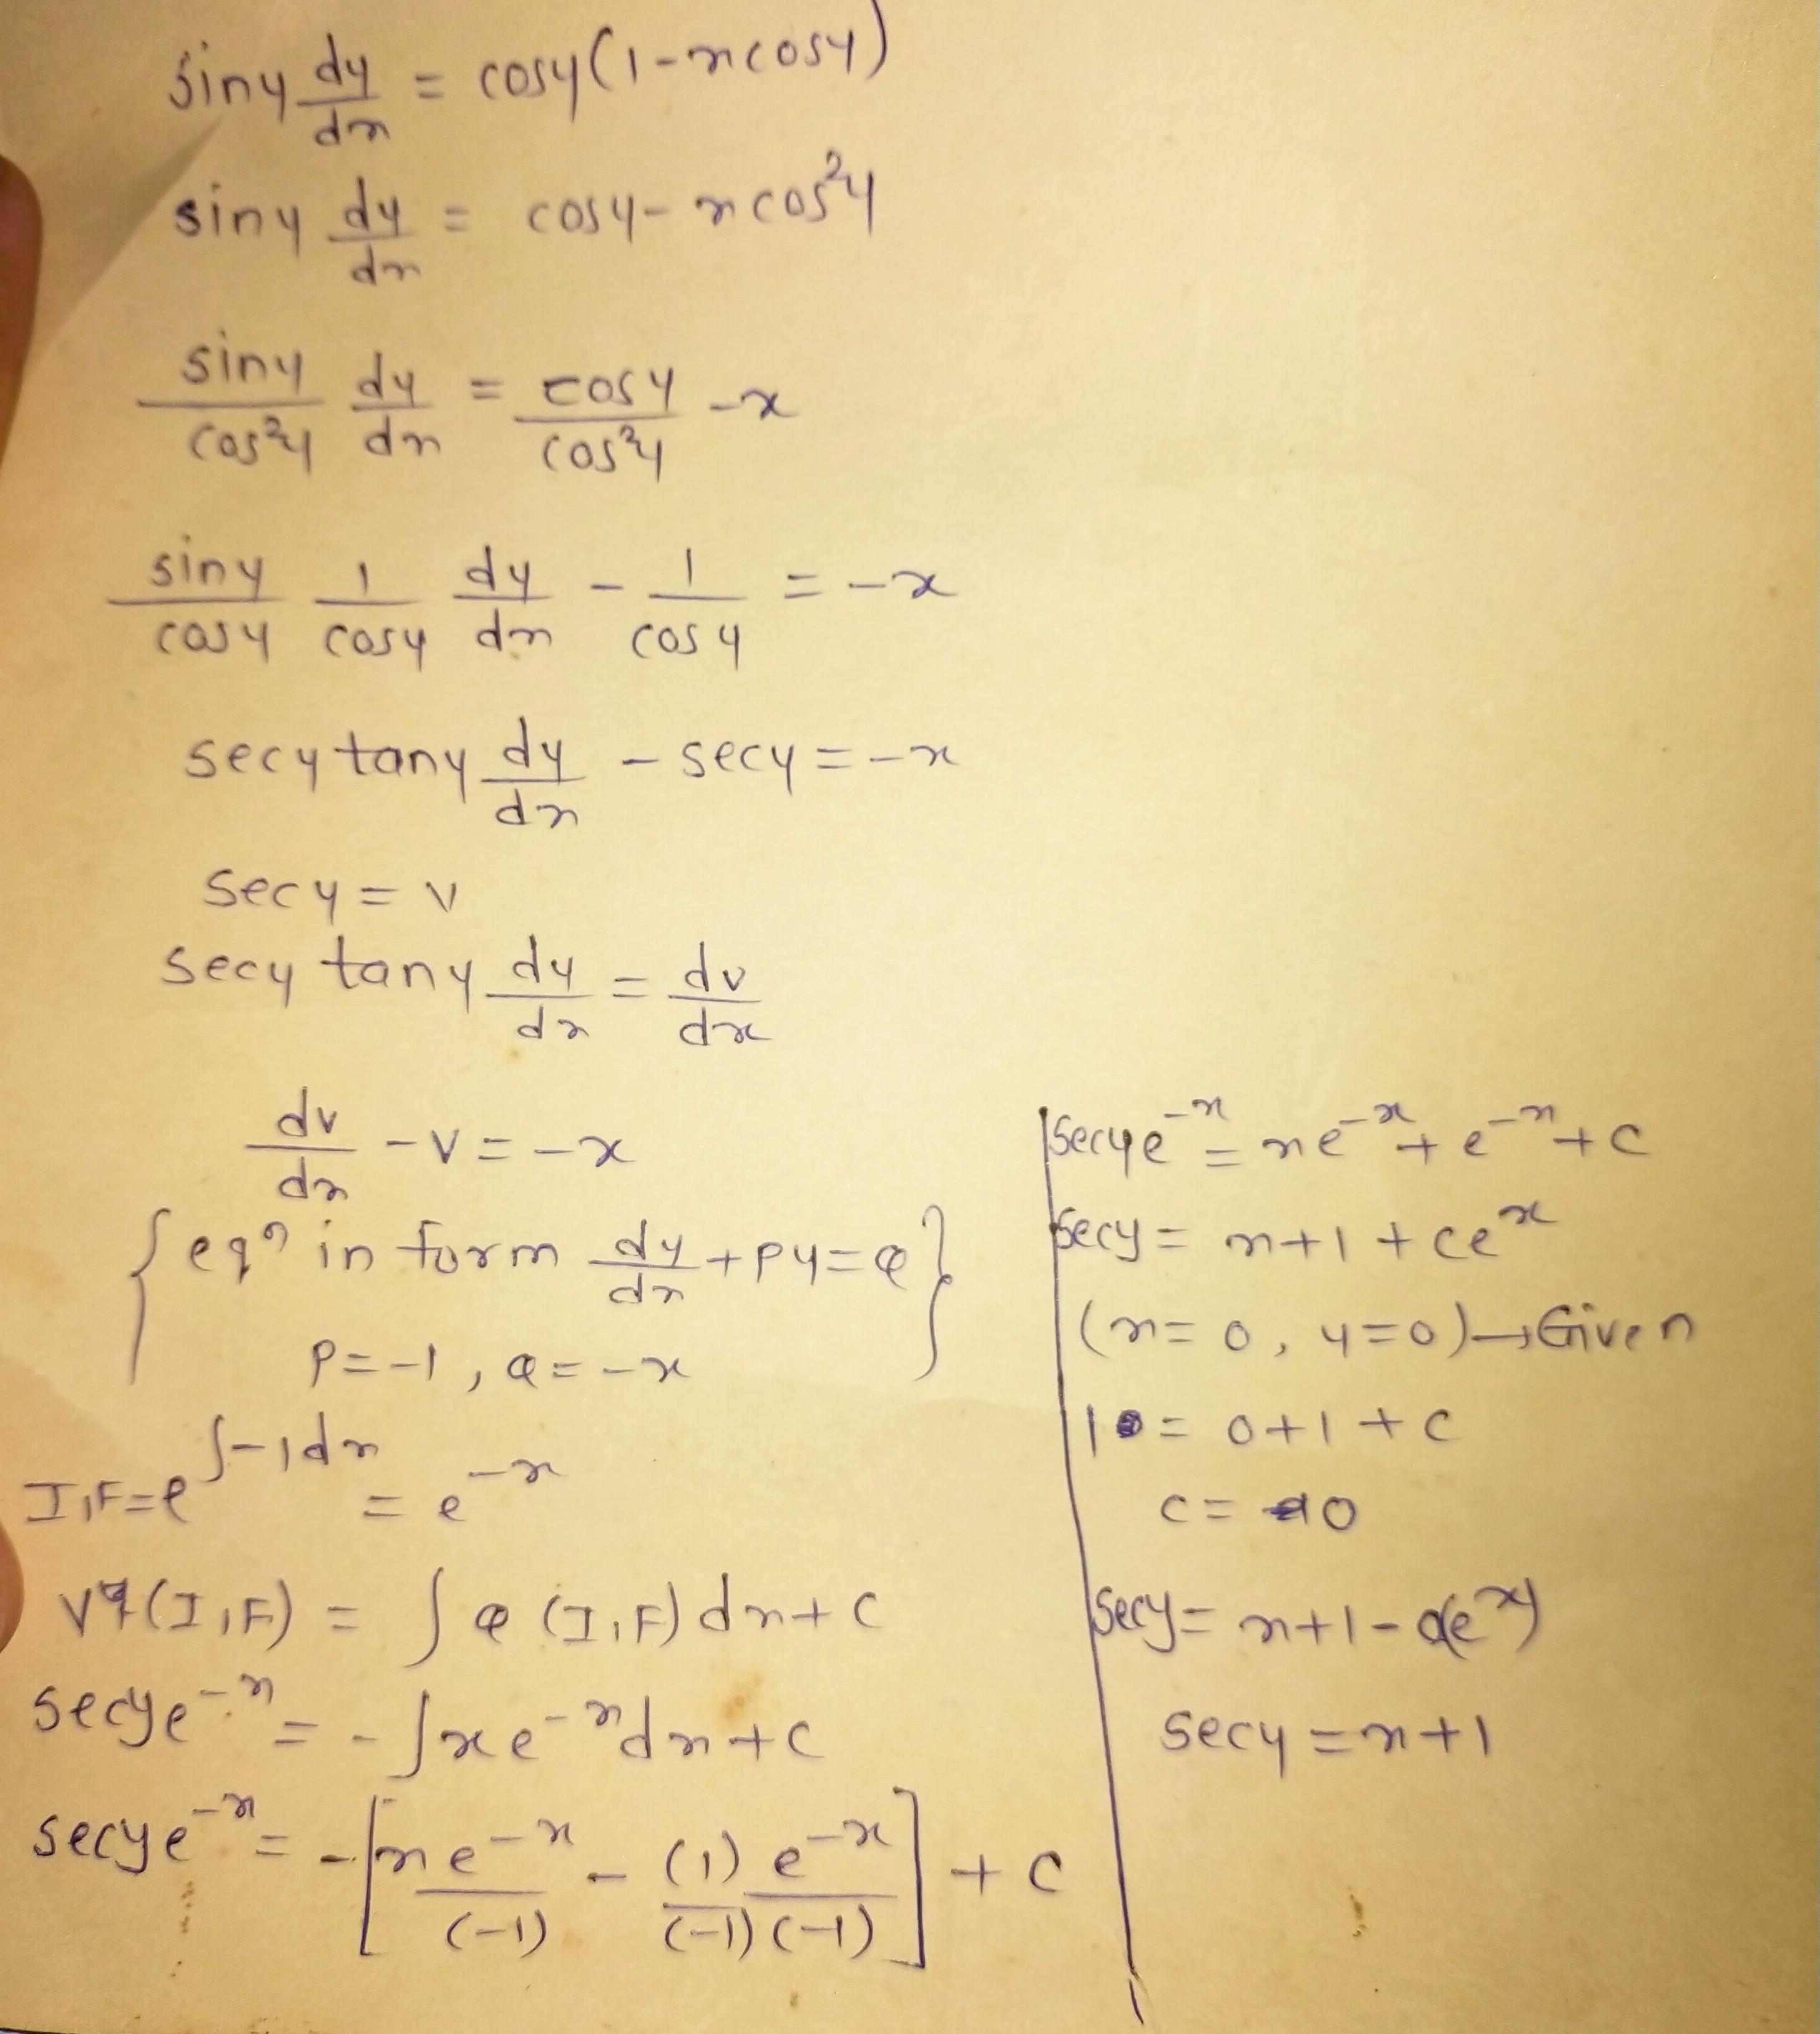 siny dy/dx = cosy(1-xcosy)
siny dy/dx = cosy - xcos²y
siny/cos²y dy/dx = cosy/cos²y - x
siny/cosy 1/cosy dy/dx - 1/cosy = -x
secy tany dy/dx - secy = -x
secy = v
secy tany dy/dx = dv/dx
dv/dx - v = -x
{eqⁿ in form dy/dx + Py = Q}
P = -1, Q = -x
I.F = e^∫-1dx = e^-x
v(I.F) = ∫Q (I.F) dx + c
secye^-x = -∫xe^-x dx + c
secye^-x = -[xe^-x/(-1) - (1)e^-x/(-1)(-1)] + c
secye^-x = xe^-x + e^-x + c
secy = x+1+ce^x
(x=0, y=0)→Given
1 = 0+1+c
c = 0
secy = x+1-0(e^x)
secy = x+1